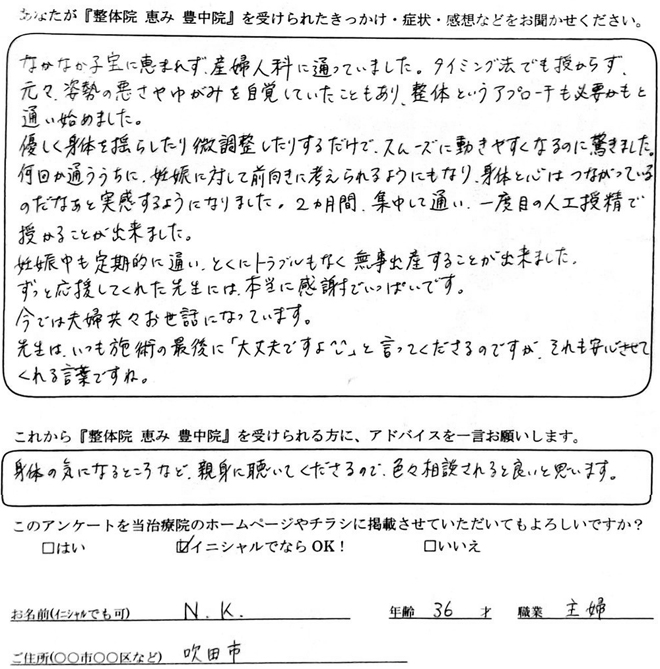 あなたが『整体院 恵み 豊中院』を受けられたきっかけ・症状・感想などをお聞かせください。
なかなか子宝に恵まれず、産婦人科に通っていました。タイミング法でも授からず、
元々、姿勢の悪さやゆがみを自覚していたこともあり、整体というアプローチも必要かもと
通い始めました。
優しく身体を揺らしたり微調整したりするだけで、スムーズに動きやすくなるのに驚きました。
何回か通ううちに、妊娠に対して前向きに考えられるようにもなり、身体と心はつながっている
のだなぁと実感するようになりました。2カ月間、集中して通い、一度目の人工授精で
授かることが出来ました。
妊娠中も定期的に通い、とくにトラブルもなく無事出産することが出来ました。
ずっと応援してくれた先生には、本当に感謝でいっぱいです。
今では夫婦共々お世話になっています。
先生は、いつも施術の最後に「大丈夫ですよ^^」と言ってくださるのですが、それも安心させて
くれる言葉ですね。
これから『整体院 恵み 豊中院』を受けられる方に、アドバイスを一言お願いします。
身体の気になるところなど、親身に聴いてくださるので、色々相談されると良いと思います。
このアンケートを当治療院のホームページやチラシに掲載させていただいてもよろしいですか?
□はい ☑イニシャルでならOK! □いいえ
お名前(イニシャルでも可) N.K. 年齢 36 才 職業 主婦
ご住所(〇〇市〇〇区など) 吹田市